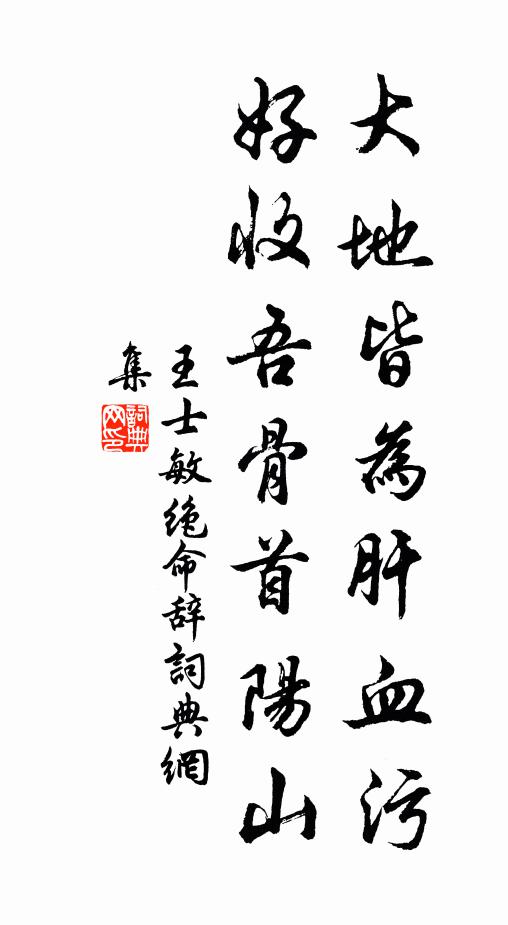 大地皆為肝血污
好收吾骨首陽山
王士敏絶命辞詞典網
集
詞典网印